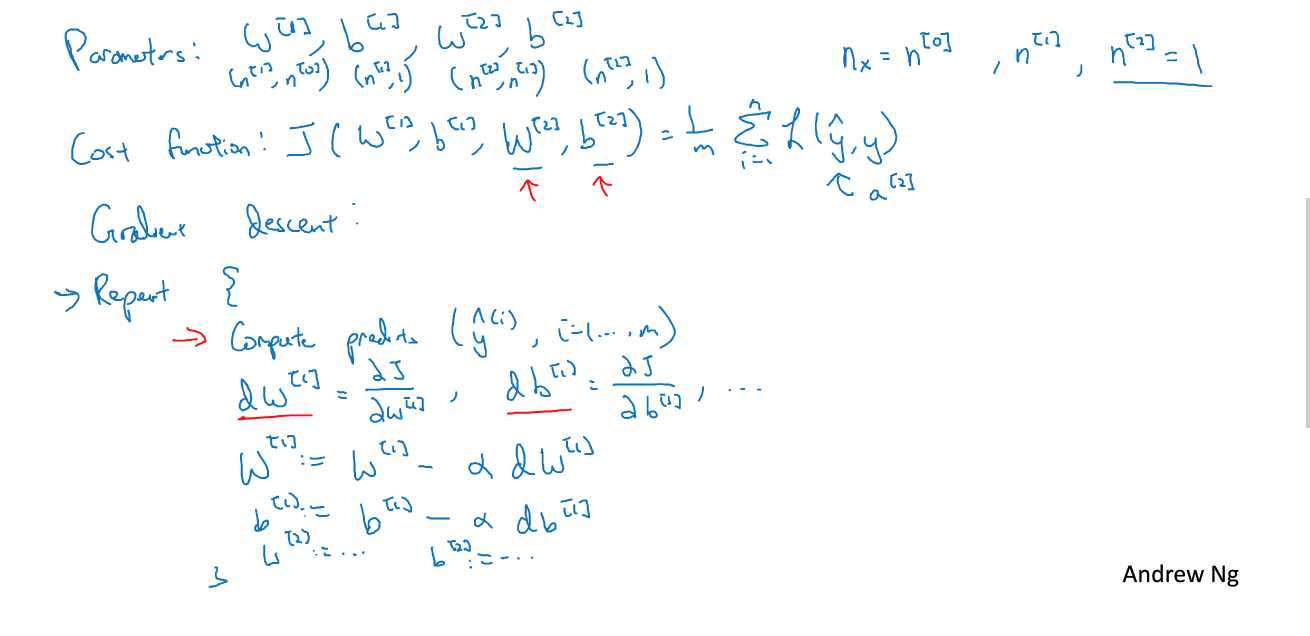 Parameters: W^[1], b^[1], W^[2], b^[2]    n_x = n^[0], n^[1], n^[2] = 1
(n^[1], n^[0]) (n^[1], 1) (n^[2], n^[1]) (n^[2], 1)
Cost function: J(W^[1], b^[1], W^[2], b^[2]) = 1/m ∑_{i=1}^{n} L(ŷ, y)
↑ ↑ ↑ a^[2]
Gradient descent:
→ Repeat {
→ Compute predicts (ŷ^(i), i=1...,m)
dw^[1] = ∂J/∂w^[1], db^[1] = ∂J/∂b^[1], ...
W^[1] := W^[1] - α dW^[1]
b^[1] := b^[1] - α db^[1]
W^[2] := ... b^[2] := ...
}
Andrew Ng